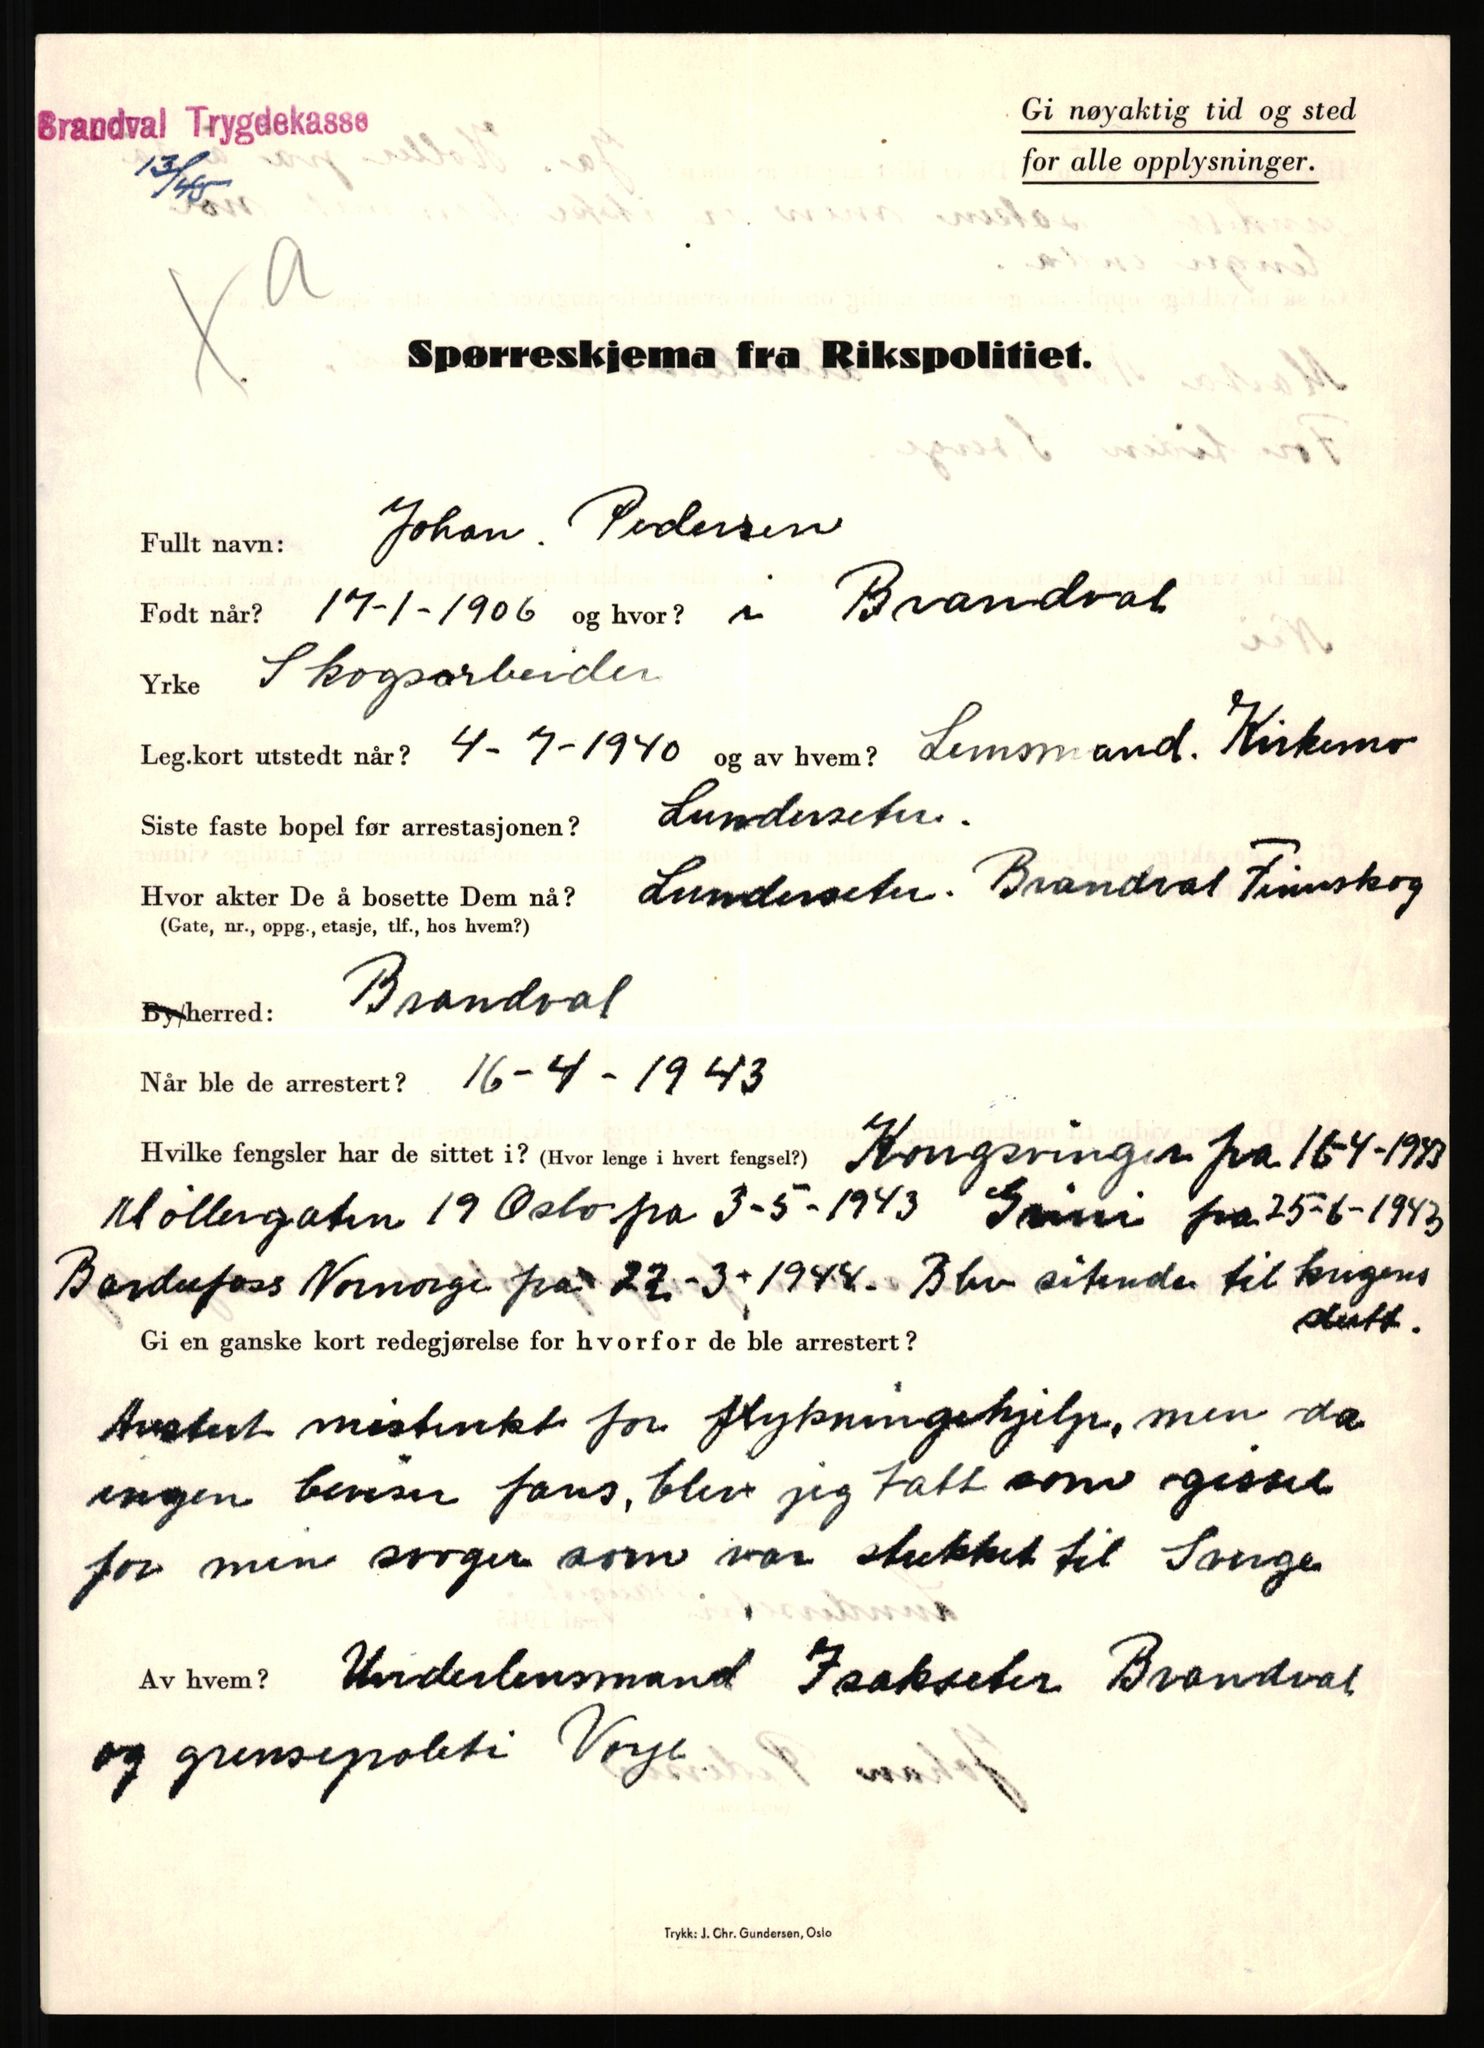 Brandval Trygdekasse
13/45
Gi nøyaktig tid og sted
for alle opplysninger.
X a
Spørreskjema fra Rikspolitiet.
Fullt navn: Johan. Pedersen
Født når? 17-1-1906 og hvor? i Brandval
Yrke Skogsarbeider
Leg.kort utstedt når? 4-7-1940 og av hvem? Lensmand. Kirkemo
Siste faste bopel før arrestasjonen? Lunderseter.
Hvor akter De å bosette Dem nå? Lunderseter. Brandval Finnskog
(Gate, nr., oppg., etasje, tlf., hos hvem?)
By/herred: Brandval
Når ble de arrestert? 16-4-1943
Hvilke fengsler har de sittet i? (Hvor lenge i hvert fengsel?) Kongsvinger fra 16-4-1943
Møllergaten 19 Oslo fra 3-5-1943 Grini fra 25-6-1943
Bardufoss Nornorge fra 22-3-1944. Blev sitende til krigens
slutt.
Gi en ganske kort redegjørelse for hvorfor de ble arrestert?
mistenkt for flyktningehjelp, men da
ingen beviser fans, blev jeg tatt som gissel
for min svoger som var stukket til Sverge
Av hvem? Underlensmand Isakseter Brandval
og grensepoleti Vorje
Trykk: J. Chr. Gundersen, Oslo